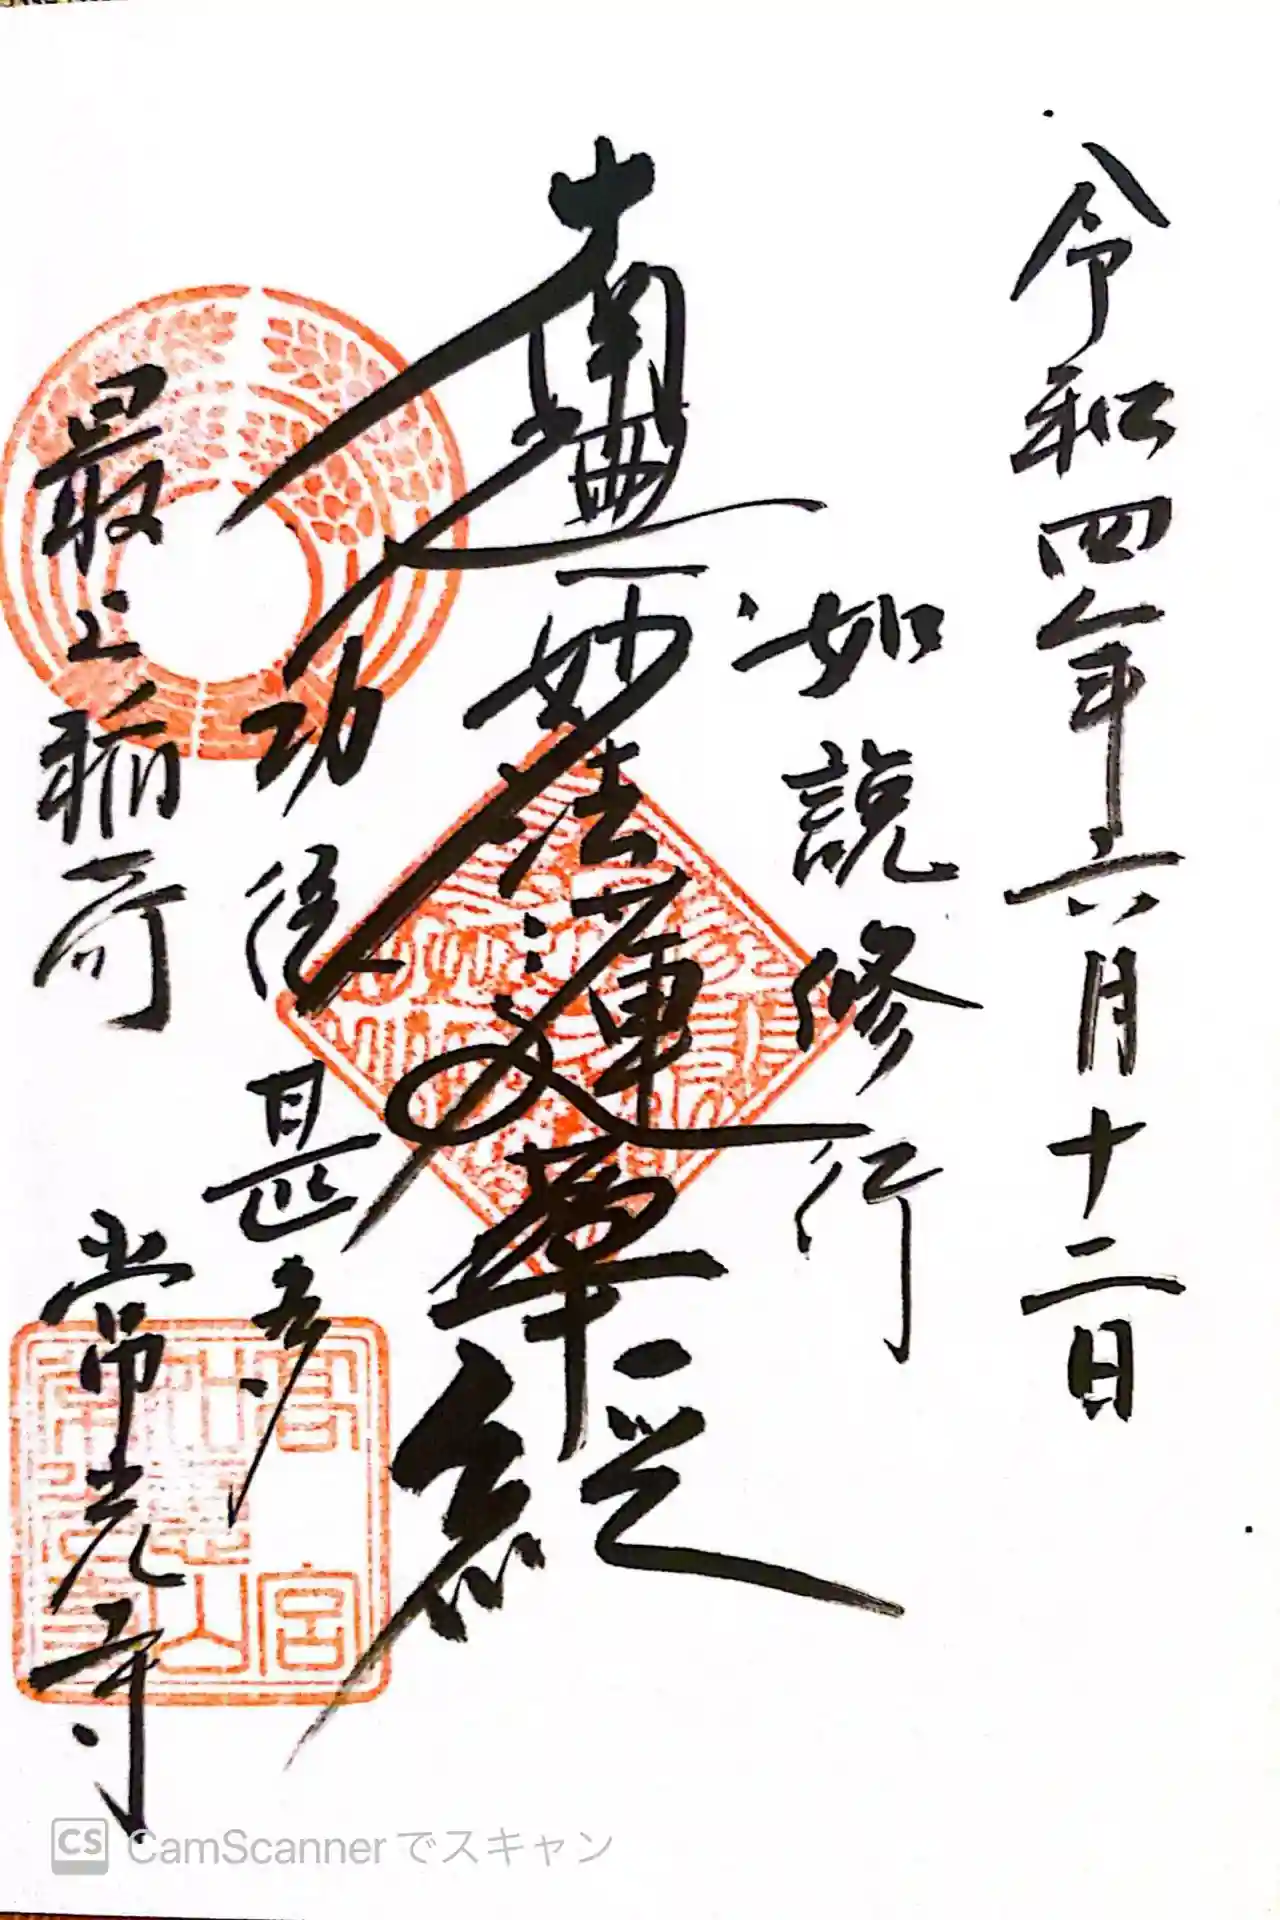 令和四年六月十二日
如説修行
南無妙法蓮華経
功徳甚多
最上稲荷 常光寺
高
宮
山
CS CamScannerでスキャン